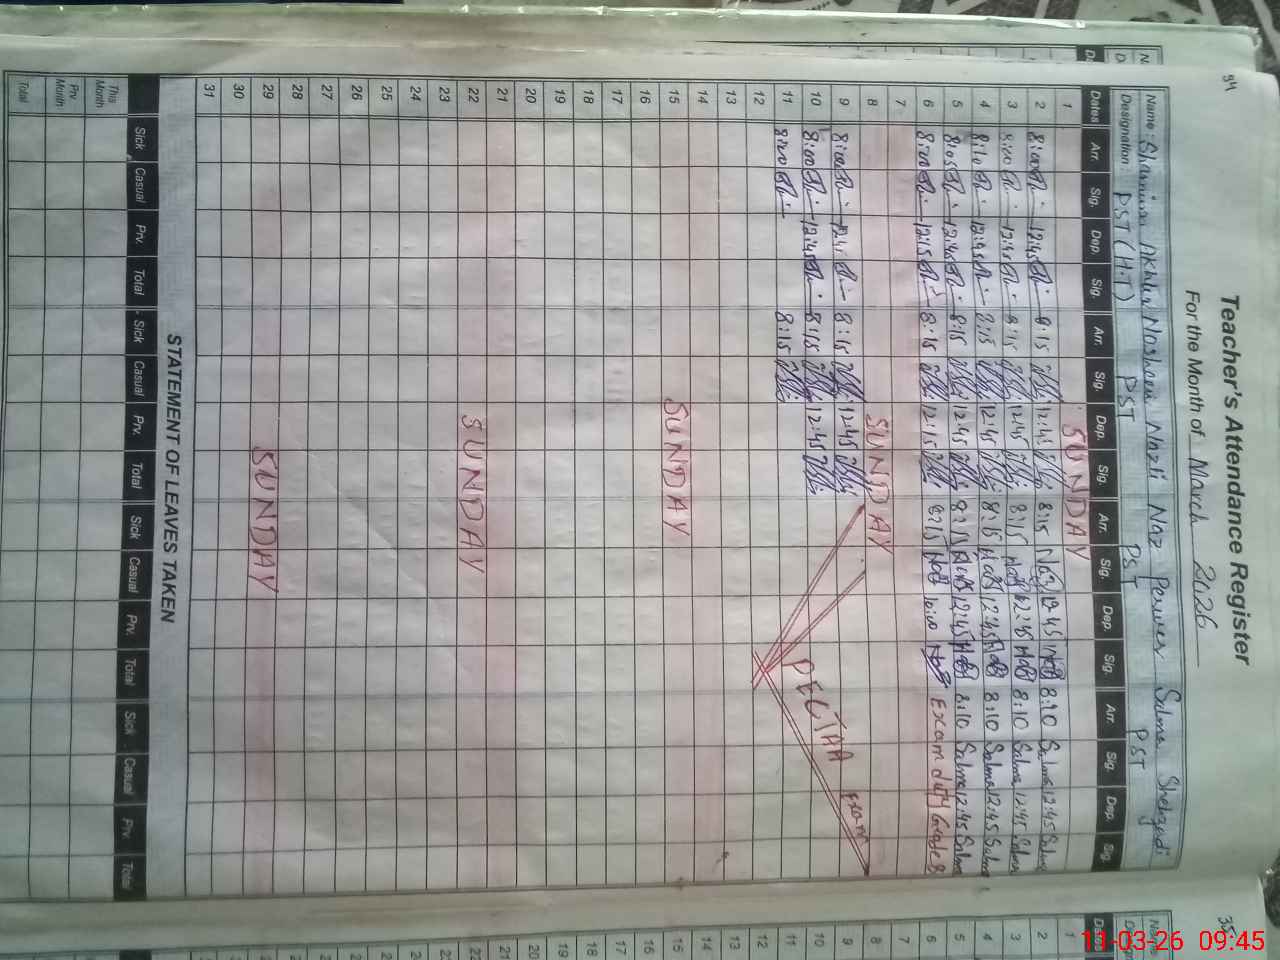 34
Teacher's Attendance Register
For the Month of March 2026
Name: Shamim Akhtar Nosheen Nazli Naz Perveen Salma Shehzadi
Designation: PST (H.T) PST PST PST
Dates Arr. Sig. Dep. Sig. Arr. Sig. Dep. Sig. Arr. Sig. Dep. Sig. Arr. Sig. Dep. Sig.
1 SUNDAY
2 8:00 12:45 8:15 12:45 8:15 Naz 12:45 Naz 8:10 Salma 12:45 Salma
3 8:00 12:45 8:15 12:45 8:15 Naz 12:45 Naz 8:10 Salma 12:45 Salma
4 8:10 12:45 8:15 12:45 8:15 Naz 12:45 Naz 8:10 Salma 12:45 Salma
5 8:05 12:45 8:15 12:45 8:15 Naz 12:45 Naz 8:10 Salma 12:45 Salma
6 8:00 12:15 8:15 12:15 8:15 Naz 10:00 Naz Exam duty Grade 8
7
8 SUNDAY
9 8:00 12:45 8:15 12:45
10 8:00 12:45 8:15 12:45 PECTAA Exam
11 8:00 8:15
12
13
14
15 SUNDAY
16
17
18
19
20
21
22 SUNDAY
23
24
25
26
27
28
29 SUNDAY
30
31
STATEMENT OF LEAVES TAKEN
Sick Casual Prv. Total Sick Casual Prv. Total Sick Casual Prv. Total Sick Casual Prv. Total
This Month
Prv. Month
Total
35
1
2
3
4
5
6
7
8
9
10
11
12
13
14
15
16
17
18
19
20
21
22
23
24
25
26
27
28
29
30
31
11-03-26 09:45